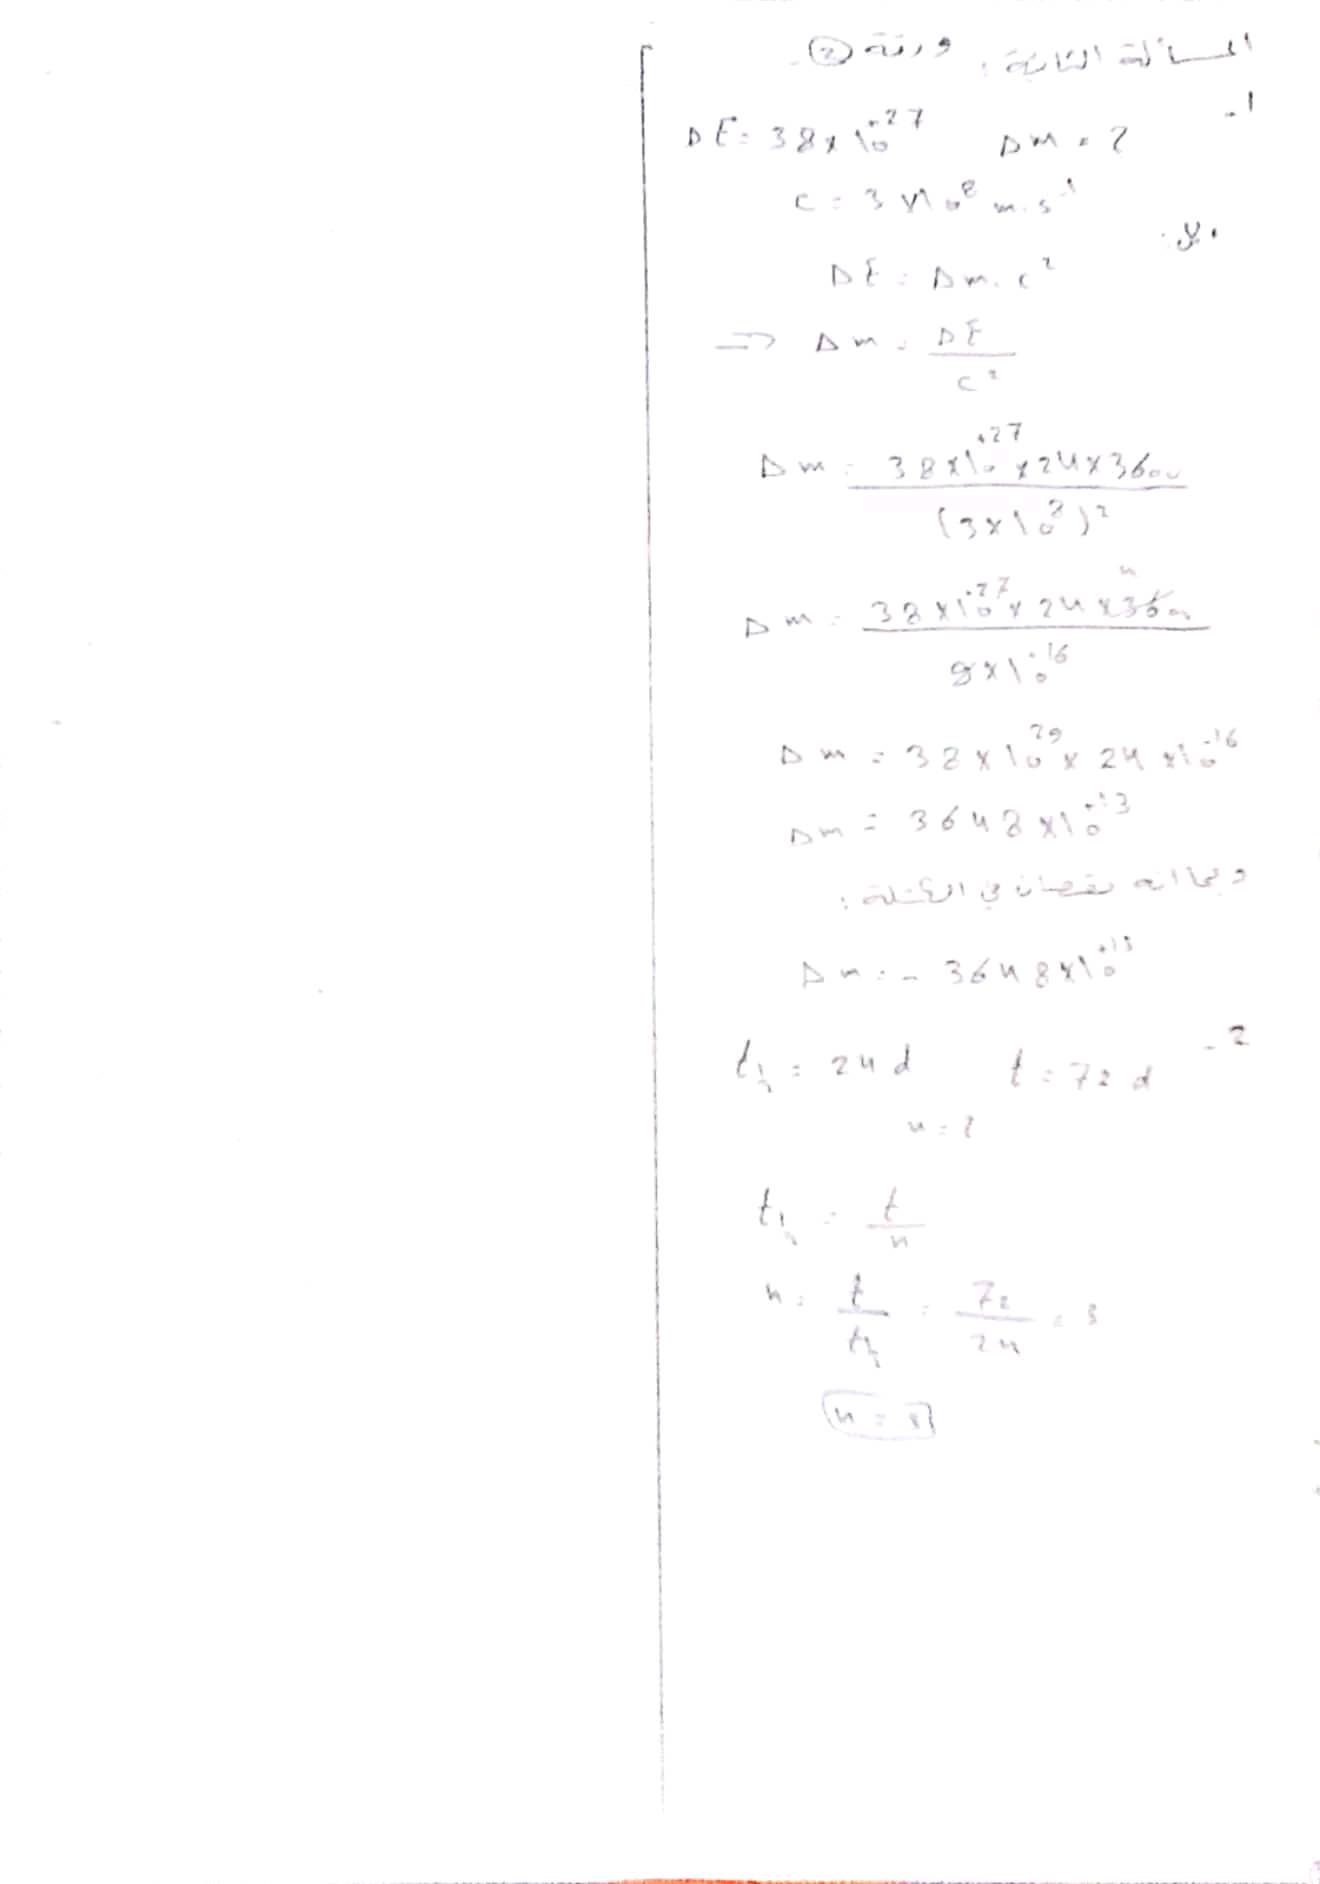 المسألة الثانية: ورقة (2)
1- ΔE = 38 × 10^+27 Δm = ?
c = 3 × 10^8 m.s^-1
ΔE = Δm.c^2
=> Δm = ΔE / c^2
Δm = 38 × 10^+27 × 24 × 3600 / (3 × 10^8)^2
Δm = 38 × 10^+27 × 24 × 3600 / 9 × 10^+16
Δm = 38 × 10^29 × 24 × 10^-16
Δm = 3648 × 10^+13
وبما انه نقصان في الكتلة:
Δm = - 3648 × 10^+13
2- t½ = 24 d t = 72 d
n = ?
t½ = t / n
n = t / t½ = 72 / 24 = 3
n = 3